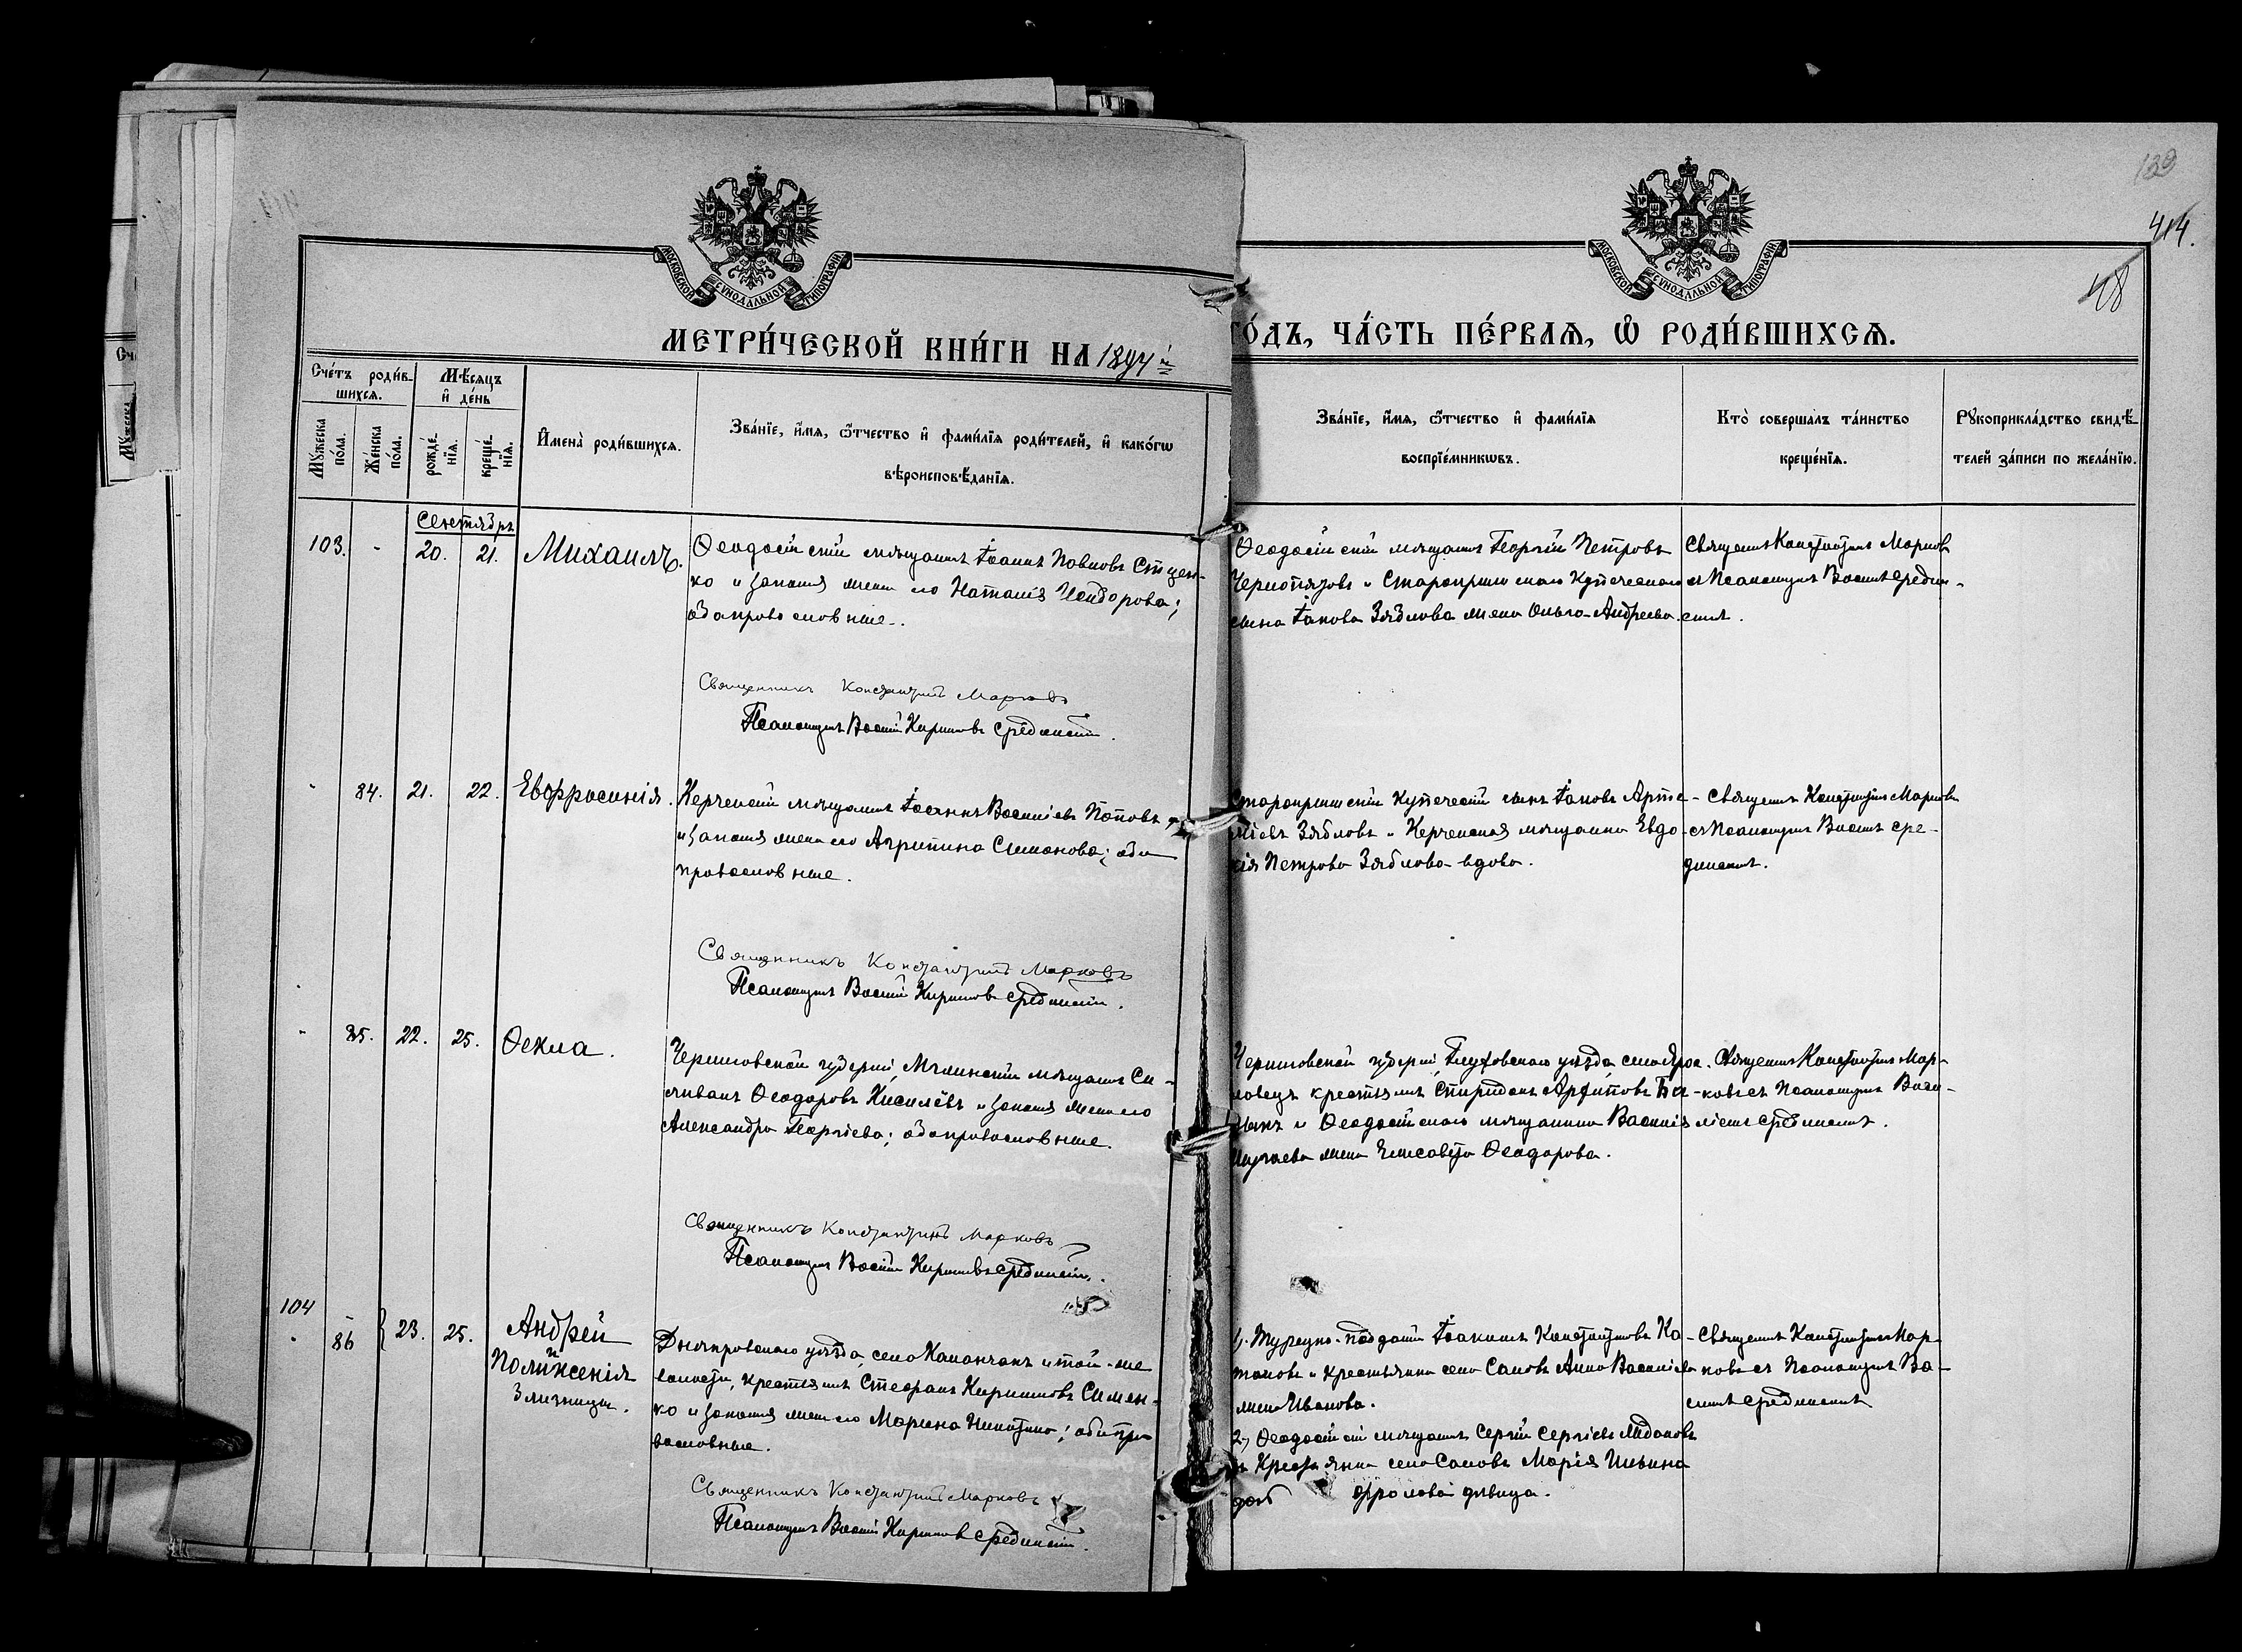 139
414.
48
МОСКОВСКОЙ СѴНОДАЛЬНОЙ ТИПОГРАФІИ
МОСКОВСКОЙ СѴНОДАЛЬНОЙ ТИПОГРАФІИ
МЕТРИ́ЧЕСКОЙ КНИ́ГИ НА 1894й
ГО́ДЪ, ЧА́СТЬ ПЕ́РВАЯ, Ѽ РОДИ́ВШИХСЯ.
Сче́тъ роди́в-
шихся.
Мѣ́сяцъ
и҆ де́нь
Му́жеска
по́ла.
Же́нска
по́ла.
рожде́-
нїя.
креще́-
нїя.
И҆мена̀ роди́вшихся.
Зва́нїе, и҆́мя, ѻ҆́тчество и҆ фами́лїя роди́телей, и҆ како́гѡ
вѣроисповѣ́данїя.
Зва́нїе, и҆́мя, ѻ҆́тчество и҆ фами́лїя
воспрїе́мникѡвъ.
Кто̀ соверша́лъ та́инство
креще́нїя.
Рꙋкоприкла́дство свидѣ́-
телей за́писи по жела́нїю.
Сентябрь
103. - 20. 21. Михаилъ.
Ѳеодосійскій мѣщанинъ Іоаннъ Павловъ Стцен-
ко и законная жена его Наталія Исидорова;
оба православные.
Священникъ Константинъ Марковъ
Псаломщикъ Василій Кириловъ Срединскій.
Ѳеодосійскій мѣщанинъ Георгій Петровъ
Чернотязовъ и Старокрымскаго купеческаго
сына Іакова Зяблова жена Ольга Андреева.
Священникъ Константинъ Марковъ
съ Псаломщик. Василіемъ Средин-
скимъ.
- 84. 21. 22. Евфросинія.
Керченскій мѣщанинъ Іоаннъ Василіевъ Поповъ
и законная жена его Агрипина Симонова; оба
православные.
Священникъ Константинъ Марковъ
Псаломщикъ Василій Кириловъ Срединскій.
Старокрымскій купеческій сынъ Іаковъ Арте-
міевъ Зябловъ и Керченская мѣщанка Евдо-
кія Петрова Зяблова вдова.
Священникъ Константинъ Марковъ
съ Псаломщик. Василіемъ Сре-
динскимъ.
- 85. 22. 25. Ѳекла.
Черниговской губерніи, Мглинскій мѣщанинъ Си-
луанъ Ѳеодоровъ Киселёвъ и законная жена его
Александра Георгіева; оба православные.
Священникъ Константинъ Марковъ
Псаломщикъ Василій Кириловъ Срединскій.
Черниговской губерніи, Глуховскаго уѣзда, села
крестьянинъ Спиридонъ Архиповъ
и Ѳеодосійскаго мѣщанина Василія
жена Елисавета Ѳеодорова.
Священникъ Константинъ Мар-
ковъ съ Псаломщикомъ Васи-
ліемъ Срединскимъ.
104 -
- 86 23. 25. Андрей
и
Поликсенія
близнецы.
Днѣпровскаго уѣзда, села Каланчакъ и той-же
волости, крестьянинъ Стефанъ Кириловъ Симен-
ко и законная жена его Марина Никитина; оба пра-
вославные.
Священникъ Константинъ Марковъ
Псаломщикъ Василій Кириловъ Срединскій.
1. Турецко-подданый Іоакимъ Константиновъ Ка-
и крестьянина села Саловъ Анна Василіева
жена Иванова.
2.) Ѳеодосійскій мѣщанинъ Сергій Сергіевъ
и Крестьянка села Саловъ Марія Ильина
Фролова дѣвица.
Священникъ Константинъ Мар-
ковъ съ Псаломщикомъ Ва-
силіемъ Срединскимъ